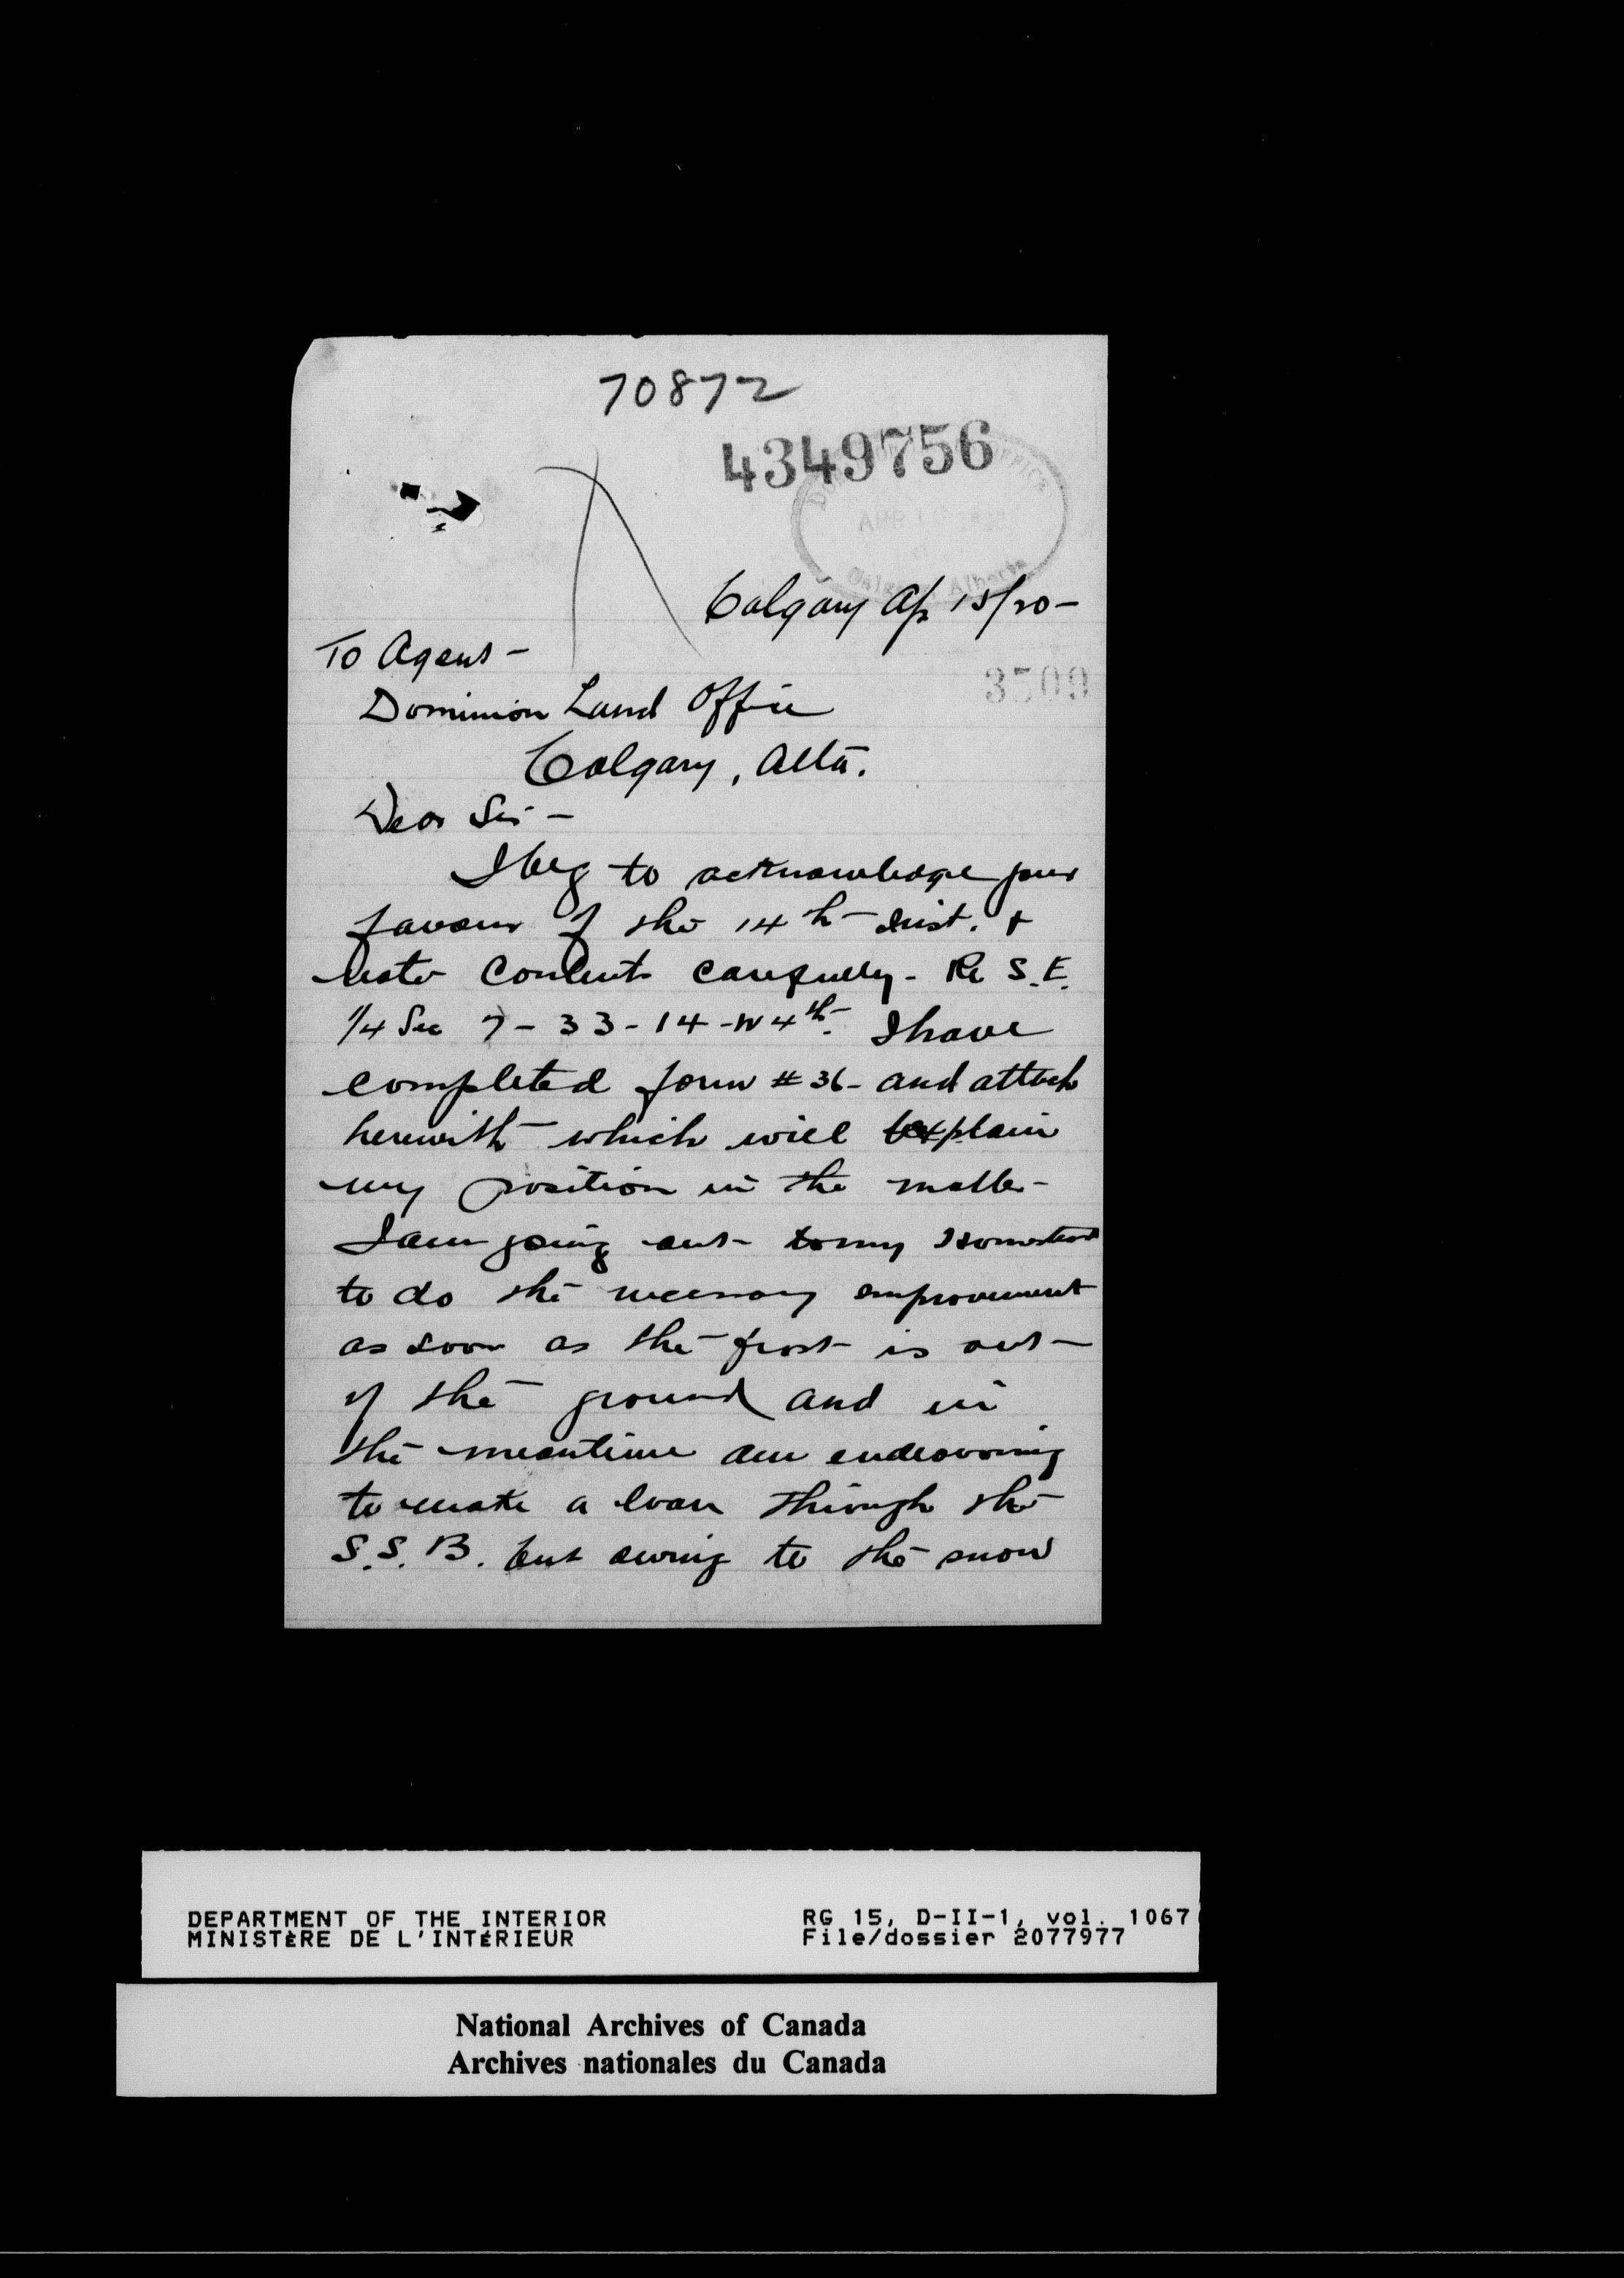 70872
4349756
APR
Calgary, Alberta
Calgary Ap 15/20 -
To Agent -
3509
Dominion Land Office
Calgary, Alta.
Dear Sir -
I beg to acknowledge your
favour of the 14th inst. +
note contents carefully - Re S.E.
1/4 Sec 7-33-14-W4th. I have
completed form #36 - and attach
herewith which will explain
my position in the matter -
I am going out to my Homestead
to do the necessary improvement
as soon as the frost is out
of the ground and in
the meantime am endeavoring
to make a loan through the
S.S.B. but owing to the snow
DEPARTMENT OF THE INTERIOR
MINISTÈRE DE L'INTÉRIEUR
RG 15, D-II-1, vol. 1067
File/dossier 2077977
National Archives of Canada
Archives nationales du Canada